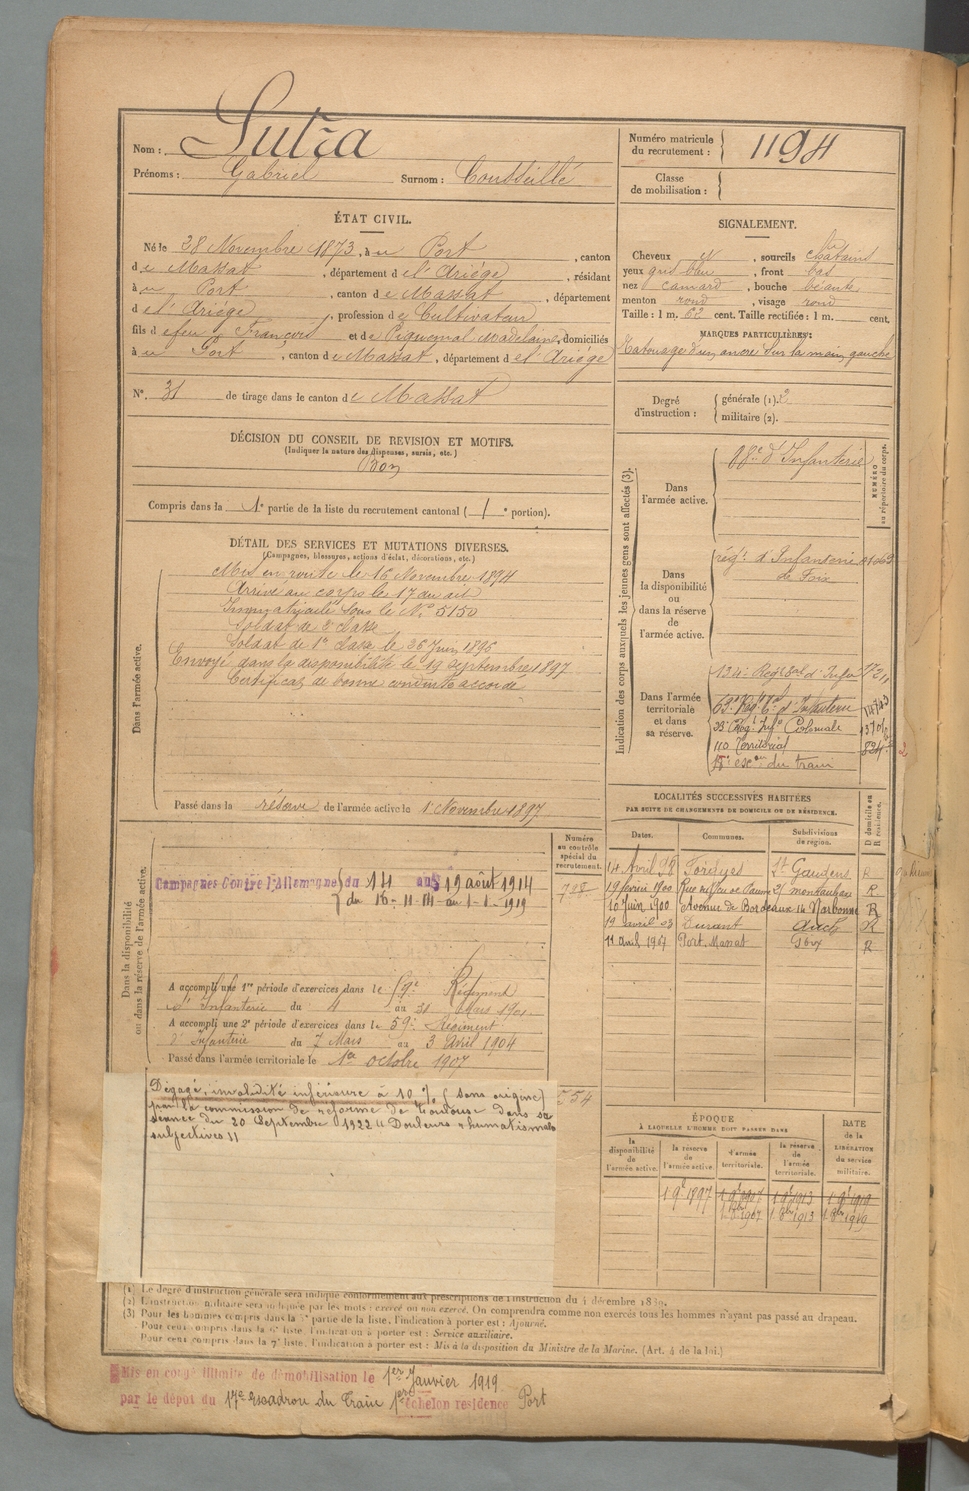 Nom : Sutra
Prénoms : Gabriel Surnom : Cousseillé
Numéro matricule du recrutement : 1194
Classe de mobilisation :
ÉTAT CIVIL.
Né le 28 Novembre 1873, à u Port, canton
de Massat, département de l'Ariège, résidant
à u Port, canton de Massat, département
de l'Ariège, profession de Cultivateur
fils de feu François et de Piquemal Madelaine, domiciliés
à u Port, canton de Massat, département de l'Ariège
N° 31 de tirage dans le canton de Massat
SIGNALEMENT.
Cheveux , sourcils chatains
yeux gris bleu, front bas
nez camard, bouche béante
menton rond, visage rond
Taille : 1 m. 62 cent. Taille rectifiée : 1 m. cent.
MARQUES PARTICULIÈRES :
Tatouage d'un ancre sur la main gauche
Degré d'instruction : générale (1). 2
militaire (2).
DÉCISION DU CONSEIL DE REVISION ET MOTIFS.
(Indiquer la nature des dispenses, sursis, etc.)
Bon
Compris dans la 1e partie de la liste du recrutement cantonal (1e portion).
DÉTAIL DES SERVICES ET MUTATIONS DIVERSES.
(Campagnes, blessures, actions d'éclat, décorations, etc.)
Dans l'armée active.
Mis en route le 16 Novembre 1894
Arrivé au corps le 17 du dit
Immatriculé sous le N° 5150
Soldat de 2e classe
Soldat de 1re classe le 26 Juin 1896
Envoyé dans la disponibilité le 19 Septembre 1897
Certificat de bonne conduite accordé
Passé dans la réserve de l'armée active le 1 Novembre 1897
Indication des corps auxquels les jeunes gens sont affectés (3).
NUMÉRO au répertoire du corps.
Dans l'armée active.
d'Infanterie
Dans la disponibilité ou dans la réserve de l'armée active.
régt d'Infanterie
de Foix
Dans l'armée territoriale et dans sa réserve.
134e Régt d'Infie
Infanterie
33e Régt Infie Coloniale
110 Territorial
17e escon du train
LOCALITÉS SUCCESSIVES HABITÉES
PAR SUITE DE CHANGEMENTS DE DOMICILE OU DE RÉSIDENCE.
Dates. Communes. Subdivisions de région. D domicile ou R résidence.
14 Avril 98 St Gaudens R
19 février 1900 Montauban R
10 Juin 1900 Avenue de Bordeaux 14 Narbonne R
19 avril 03 Durant Auch R
11 avril 1907 Port. Massat Foix R
Dans la disponibilité ou dans la réserve de l'armée active.
Numéro au contrôle spécial du recrutement.
728
Campagnes Contre l'Allemagne du 14 au 19 août 1914
du 16-11-14 au 1-1-1919
A accompli une 1re période d'exercices dans le 59e Régiment
d'Infanterie du 4 au 31 Mars 1901
A accompli une 2e période d'exercices dans le 59e Régiment
d'Infanterie du 7 Mars au 3 Avril 1904
Passé dans l'armée territoriale le 1er octobre 1907
Dégagé, invalidité inférieure à 10 % (sans origine)
par la commission de réforme de Toulouse dans sa
séance du 20 Septembre 1922 "Douleurs rhumatismales
subjectives"
754
ÉPOQUE
À LAQUELLE L'HOMME DOIT PASSER DANS
DATE de la LIBÉRATION du service militaire.
la disponibilité de l'armée active. la réserve de l'armée active. l'armée territoriale. la réserve de l'armée territoriale.
1 9e 1897 1 9e 1907 1 9e 1913 1 9e 1919
1 8bre 1907 1 8bre 1913 1 8bre 1919
(1) Le degré d'instruction générale sera indiqué conformément aux prescriptions de l'instruction du 4 décembre 1889.
(2) L'instruction militaire sera indiquée par les mots : exercé ou non exercé. On comprendra comme non exercés tous les hommes n'ayant pas passé au drapeau.
(3) Pour les hommes compris dans la 5e partie de la liste, l'indication à porter est : Ajourné.
Pour ceux compris dans la 6e liste, l'indication à porter est : Service auxiliaire.
Pour ceux compris dans la 7e liste, l'indication à porter est : Mis à la disposition du Ministre de la Marine. (Art. 4 de la loi.)
Mis en congé illimité de démobilisation le 1er Janvier 1919
par le dépôt du 17e Escadron du Train 1er échelon résidence Port